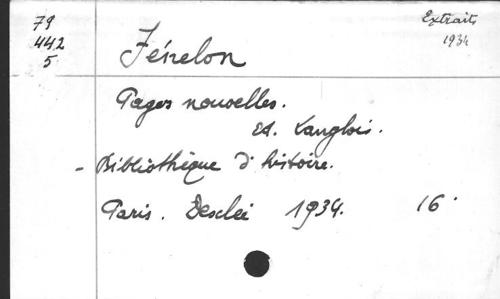 79
442
5
Extraits
1934
Fénelon
Pages nouvelles.
Ed. Langlois.
- Bibliothèque d'histoire.
Paris. Desclée 1934. 16°